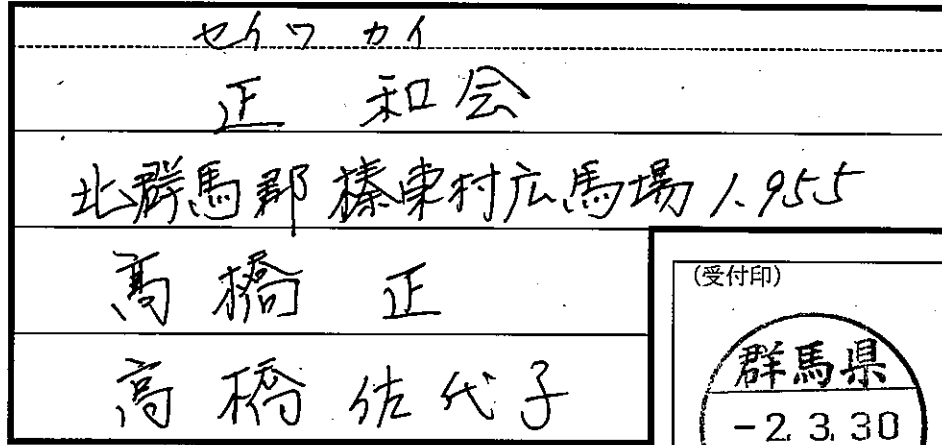 セイワ カイ
正 和会
北群馬郡榛東村広馬場1.955
髙橋 正
高橋佐代子
(受付印)
群馬県
-2.3.30